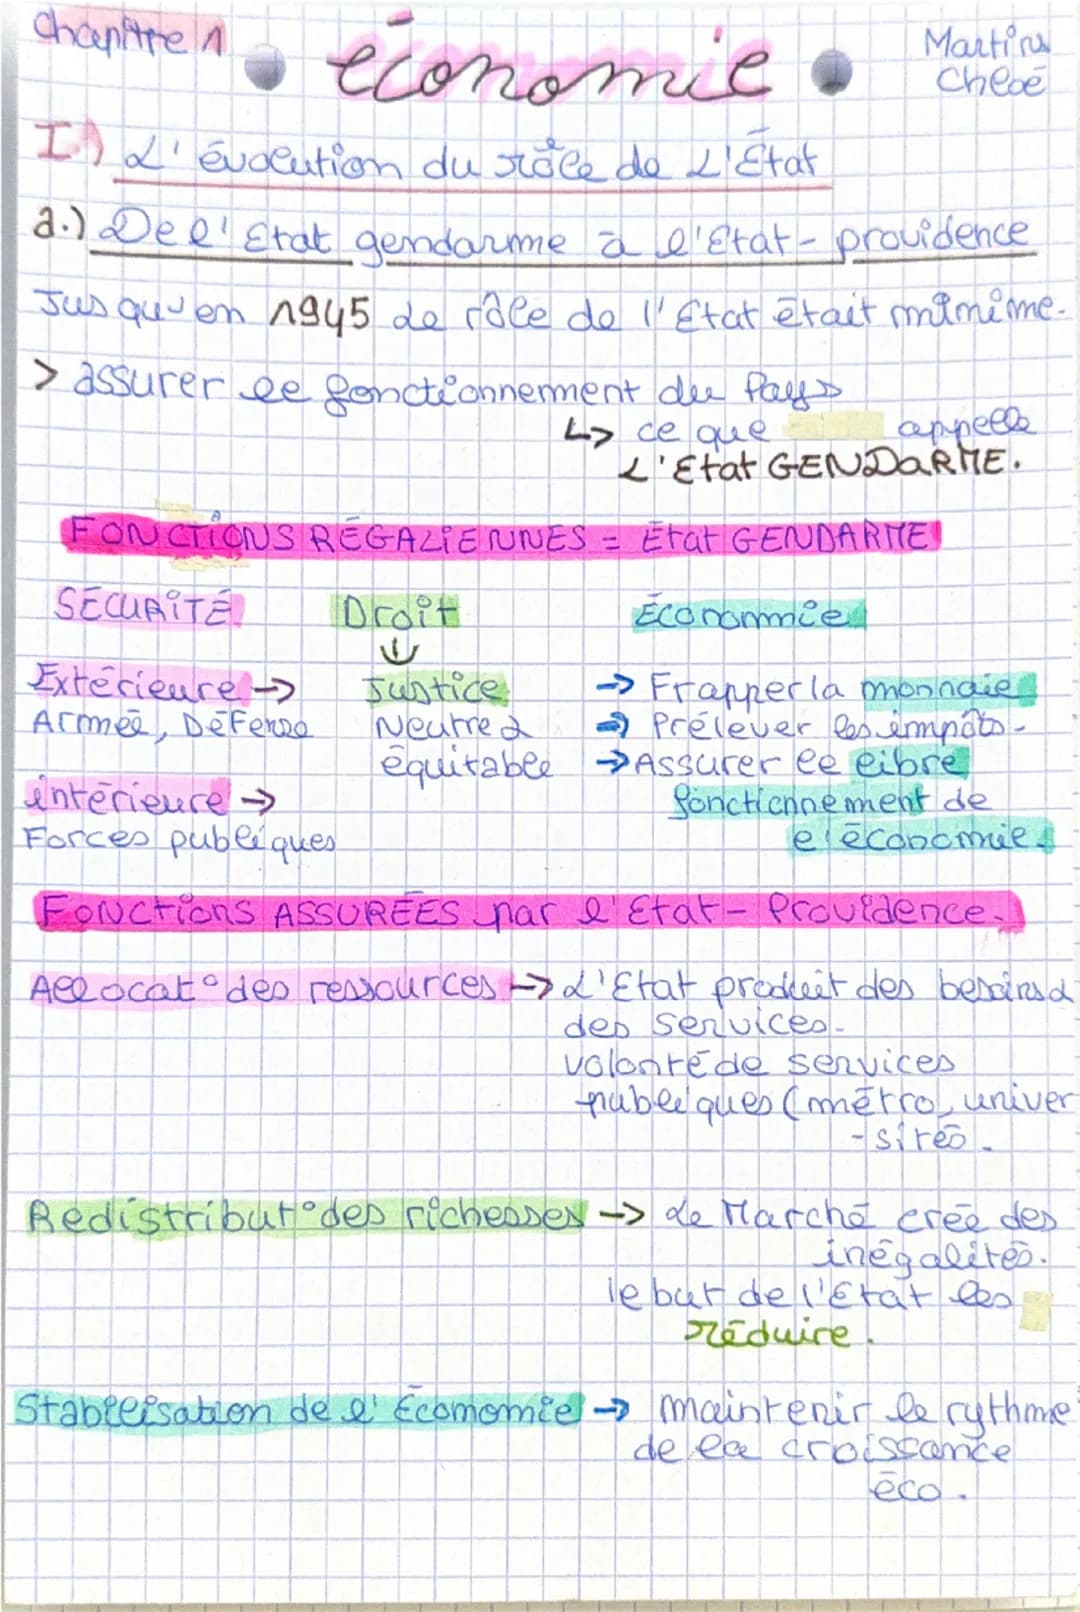 Chapitre 1
économie
Martins
Chloé
I) L'évolution du rôle de L'État
a.) De l'Etat gendarme à l'Etat-providence
Jusqu'en 1945 le rôle de l'Etat était minime.
> assurer le fonctionnement du Pays
↳ ce que appelle
L'Etat GENDARME.
FONCTIONS RÉGALIENNES = État GENDARME
SÉCURITÉ Droit Économie
↓
Extérieure → Justice → Frapper la monnaie
Armée, Défense Neutre & → Prélever les impôts.
équitable → Assurer le libre
intérieure → fonctionnement de
Forces publiques l'économie.
Fonctions ASSURÉES par l'Etat-Providence.
Allocat° des ressources → L'Etat produit des besoins &
des services.
volonté de services
publiques (métro, univer
-sités.
Redistribut° des richesses → Le Marché crée des
inégalités.
le but de l'Etat les
réduire.
Stabilisation de l'Économie → maintenir le rythme
de la croissance
éco.